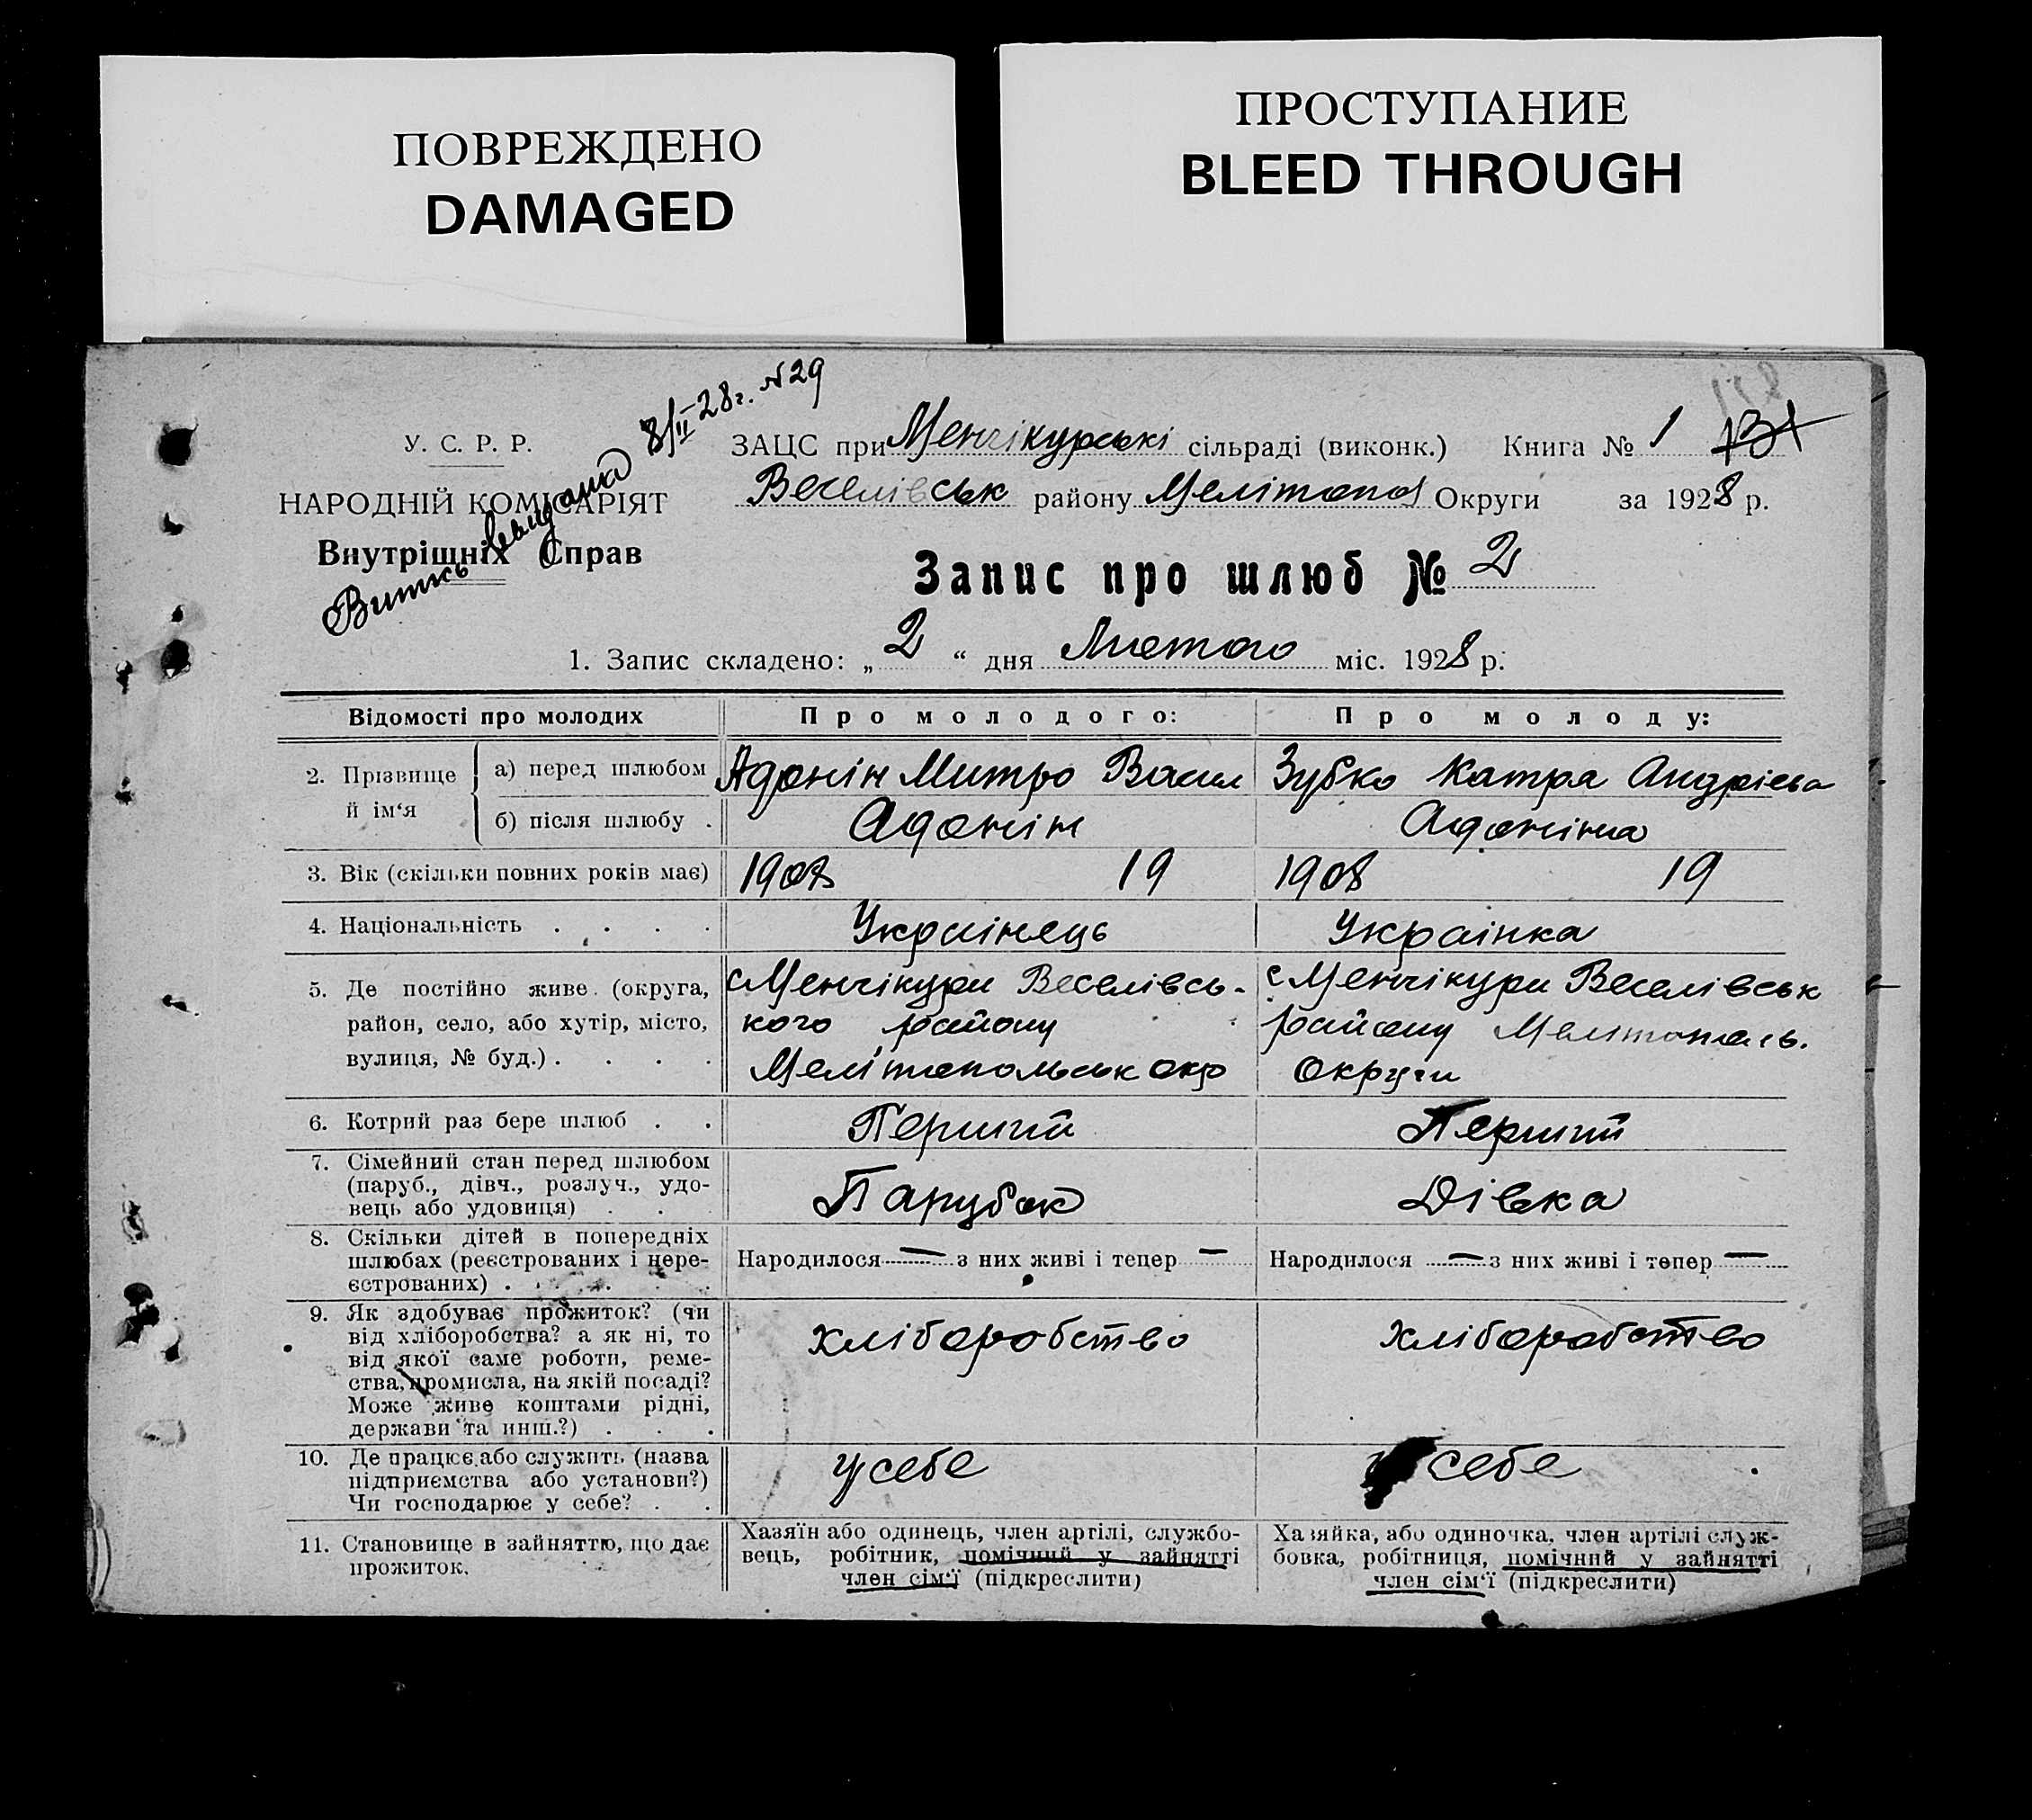 ПОВРЕЖДЕНО
DAMAGED
ПРОСТУПАНИЕ
BLEED THROUGH
Витяг видано 8/II-28г. №29
У. С. Р. Р.
НАРОДНІЙ КОМІСАРІЯТ
Внутрішніх Справ
ЗАЦС при Менчікурські сільраді (виконк.) Книга № 1
Веселівськ району Мелітопол Округи за 1928 р.
Запис про шлюб № 2
1. Запис складено: „ 2 “ дня Лютого міс. 1928 р.
Відомості про молодих
Про молодого:
Про молоду:
2. Прізвище й ім‘я
а) перед шлюбом Адонін Митро Васил Зубко Катря Андріева
б) після шлюбу . Адонін Адоніна
3. Вік (скільки повних років має) 1908 19 1908 19
4. Національність . . . . Українець Українка
5. Де постійно живе (округа,
район, село, або хутір, місто,
вулиця, № буд.) . . . .
с Менчікури Веселівсь-
кого району
Мелітопольськ окр
с Менчікури Веселівськ
району Мелітополь.
Округи
6. Котрий раз бере шлюб . . Перший Перший
7. Сімейний стан перед шлюбом
(паруб., дівч., розлуч., удо-
вець або удовиця) . .
Парубок Дівка
8. Скільки дітей в попередніх
шлюбах (реєстрованих і нере-
єстрованих) . . . .
Народилося — з них живі і тепер —
Народилося — з них живі і тепер —
9. Як здобуває прожиток? (чи
від хліборобства? а як ні, то
від якої саме роботи, реме-
ства, промисла, на якій посаді?
Може живе коштами рідні,
держави та инш.?) . . .
хліборобство хліборобство
10. Де працює або служить (назва
підприємства або установи?)
Чи господарює у себе? . .
у себе у себе
11. Становище в зайняттю, що дає
прожиток.
Хазяїн або одинець, член артілі, службо-
вець, робітник, помічний у зайнятті
член сім‘ї (підкреслити)
Хазяйка, або одиночка, член артілі служ-
бовка, робітниця, помічний у зайнятті
член сім‘ї (підкреслити)